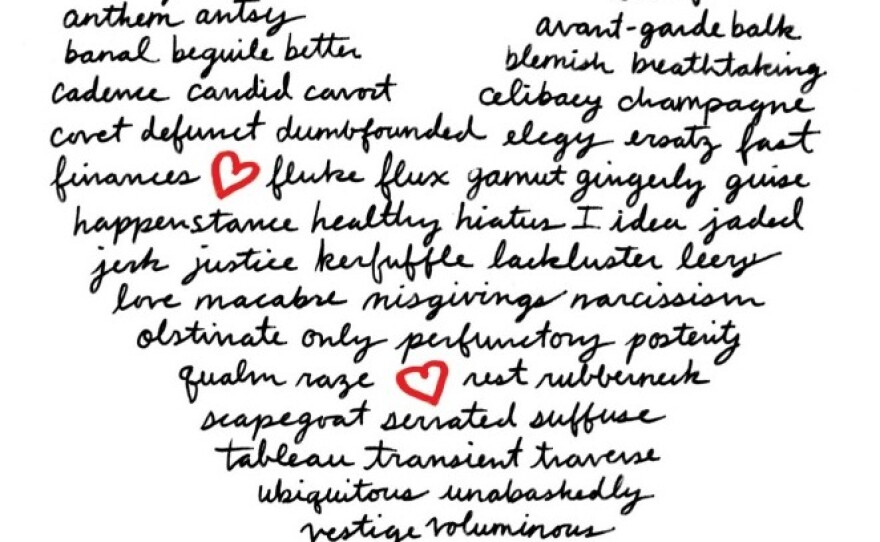 anthem antsy
avant-garde balk
banal beguile better
blemish breathtaking
cadence candid cavort
celibacy champagne
covet defunct dumbfounded elegy ersatz fast
finances fluke flux gamut gingerly guise
happenstance healthy hiatus I idea jaded
jerk justice kerfuffle lackluster leery
love macabre misgivings narcissism
obstinate only perfunctory posterity
qualm raze rest rubberneck
scapegoat serrated suffuse
tableau transient traverse
ubiquitous unabashedly
vestige voluminous